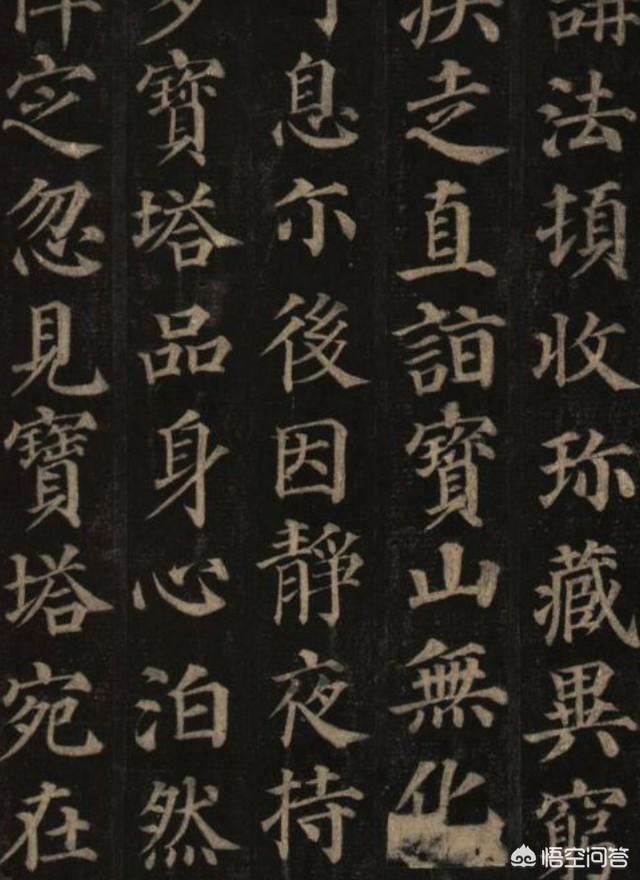 講法頓收珎藏異窮
疾走直詣寶山無化
息尒後因靜夜持
多寶塔品身心泊然
定忽見寶塔宛在
悟空问答